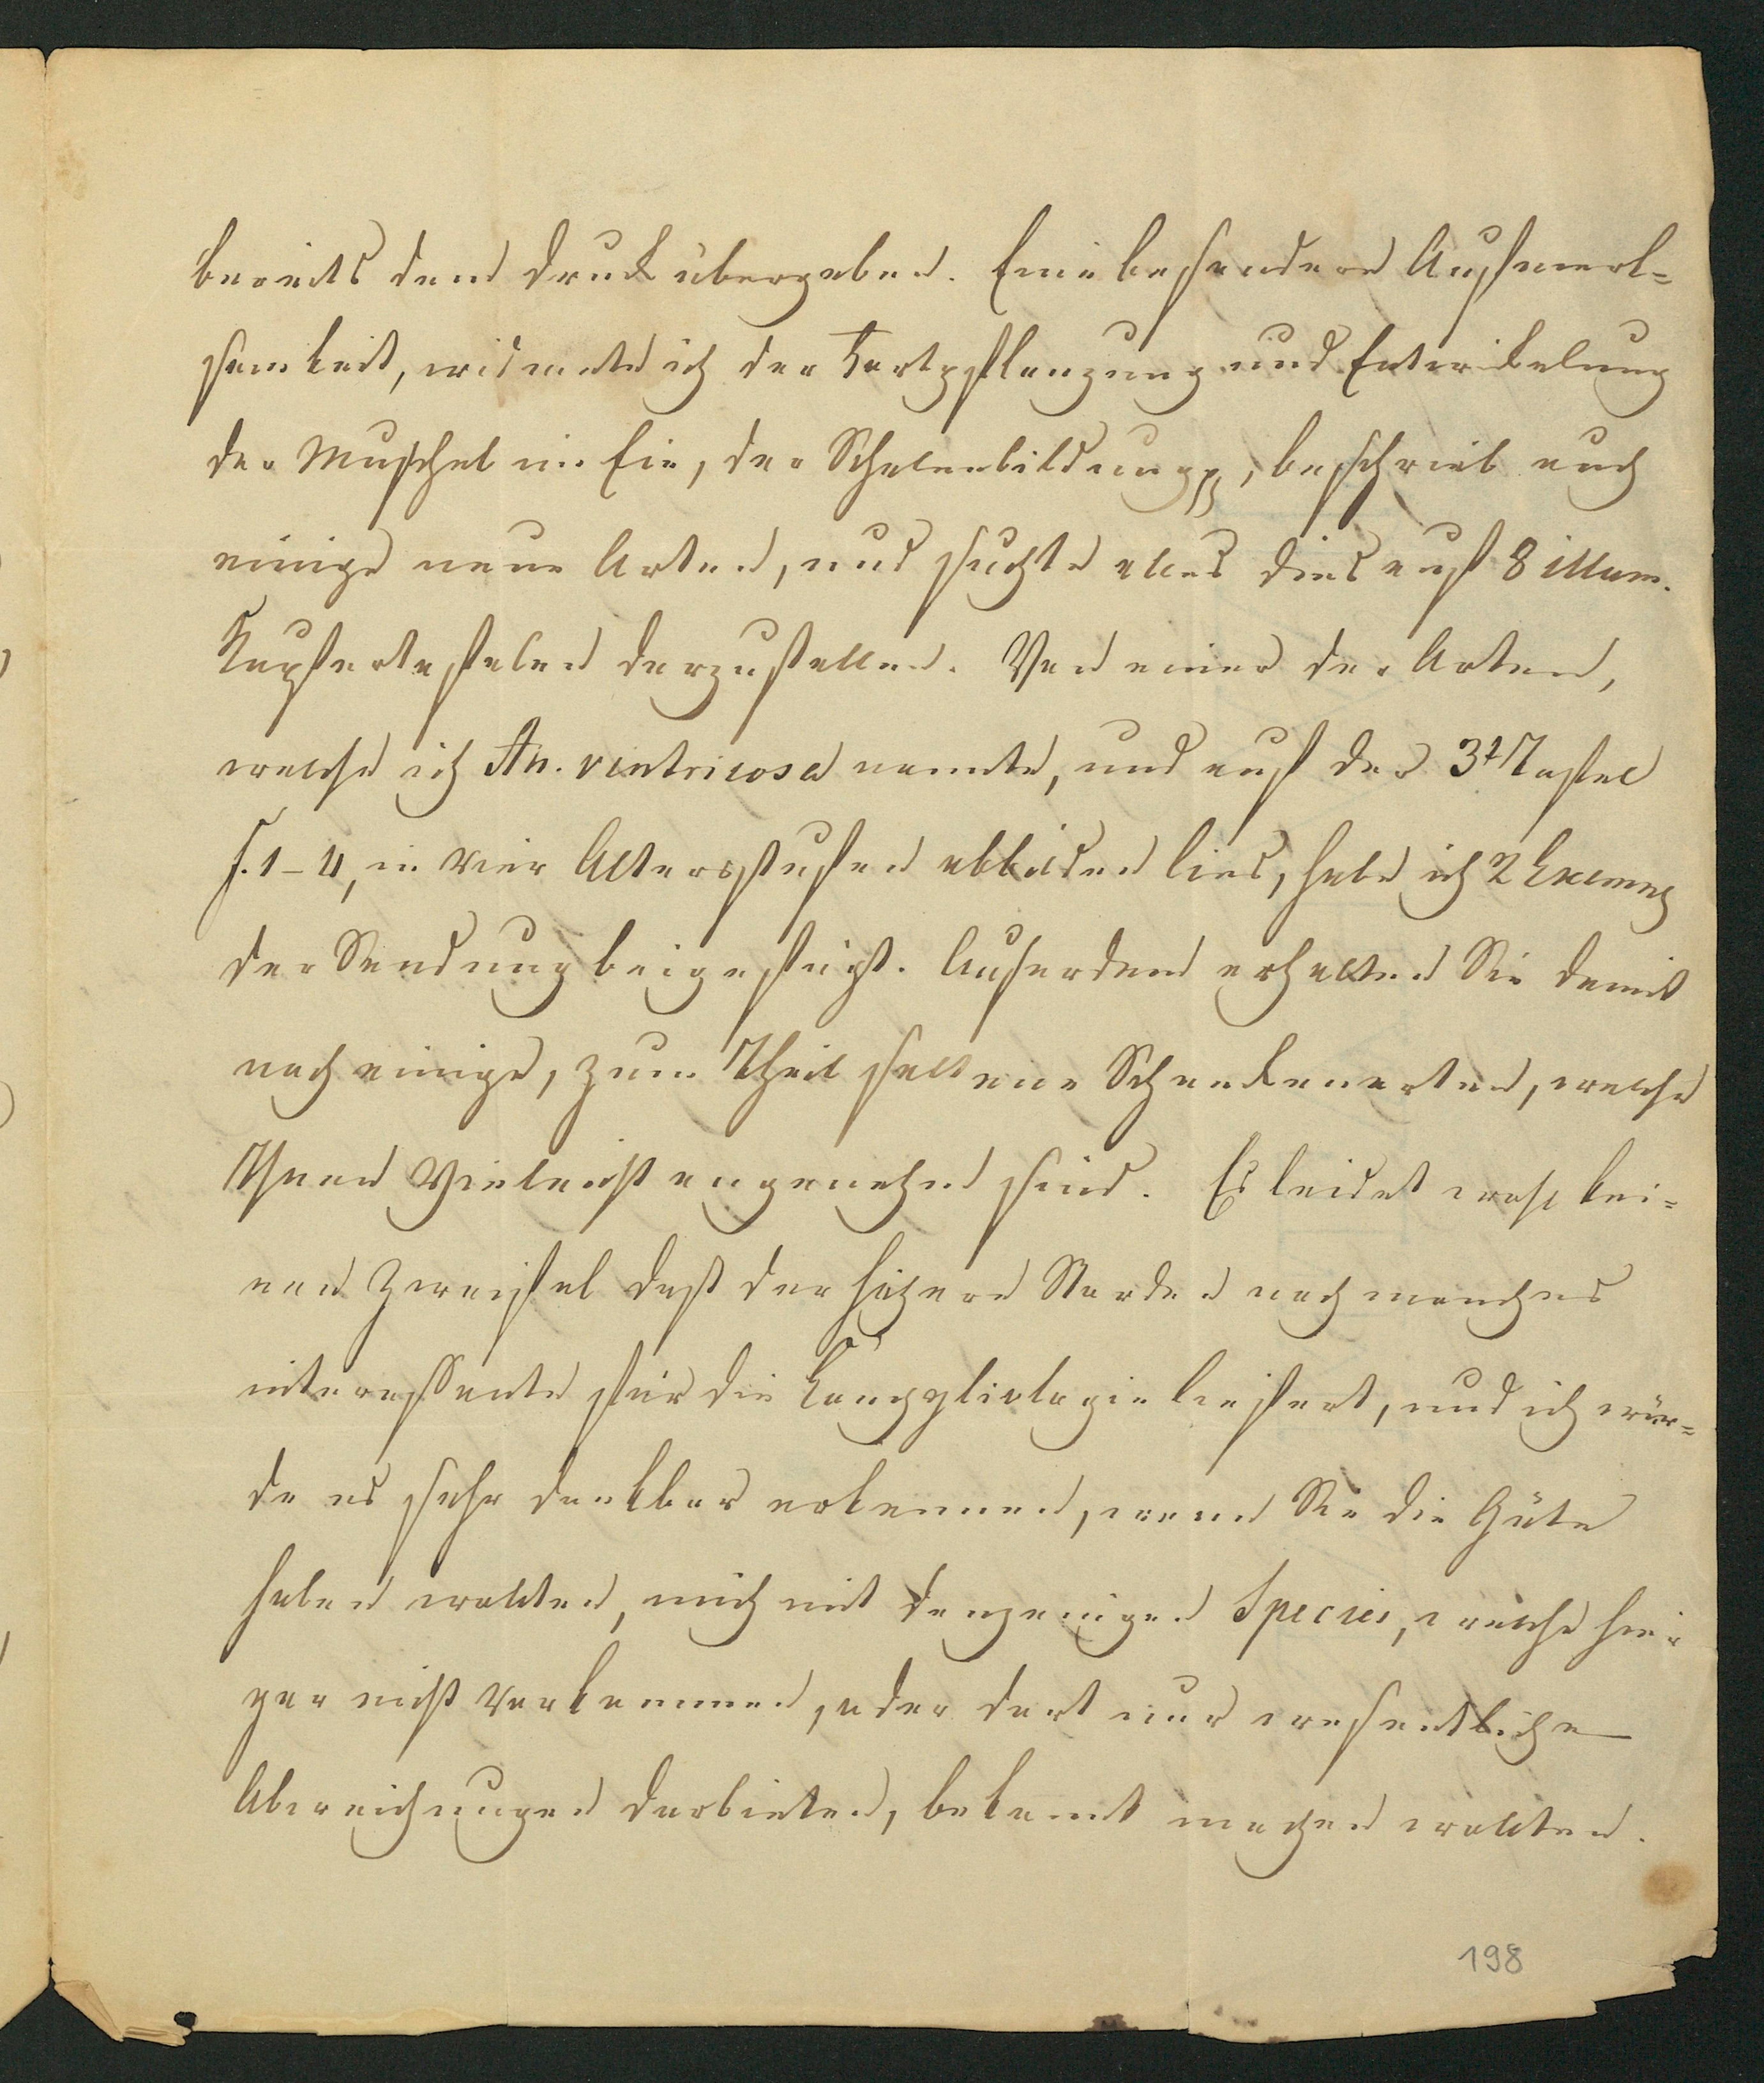 bereits dem Druck übergeben. Eine besondere Aufmerk=
samkeit, widmete ich der Fortpflanzung und Entwickelung
der Muschel im Eie, der Schalenbildung pp, beschrieb auch
einige neue Arten, und suchte alles dies auf 8 illum.
Kupfertafeln darzustellen. Von einer der Arten,
welche ich An. ventricosa nannte, und auf der 3t Tafel
f. 1–4, in vier Altersstufen abbilden lies, habe ich 2 Exempl
der Sendung beigefügt. Auserdem erhalten Sie damit
noch einige, zum Theil seltene Schneckenarten, welche
Ihnen vieleicht angenehm sind. Es leidet wohl kei=
nen Zweifel daß der höhere Norden noch manches
interessante für die Conchyliologie liefert, und ich wür=
de es sehr dankbar erkennen, wenn Sie die Güte
haben wollten, mich mit denjenigen Species, welche hier
gar nicht vorkommen, oder dort nur wesentliche
Abweichungen darbieten, bekannt machen wollten.
198